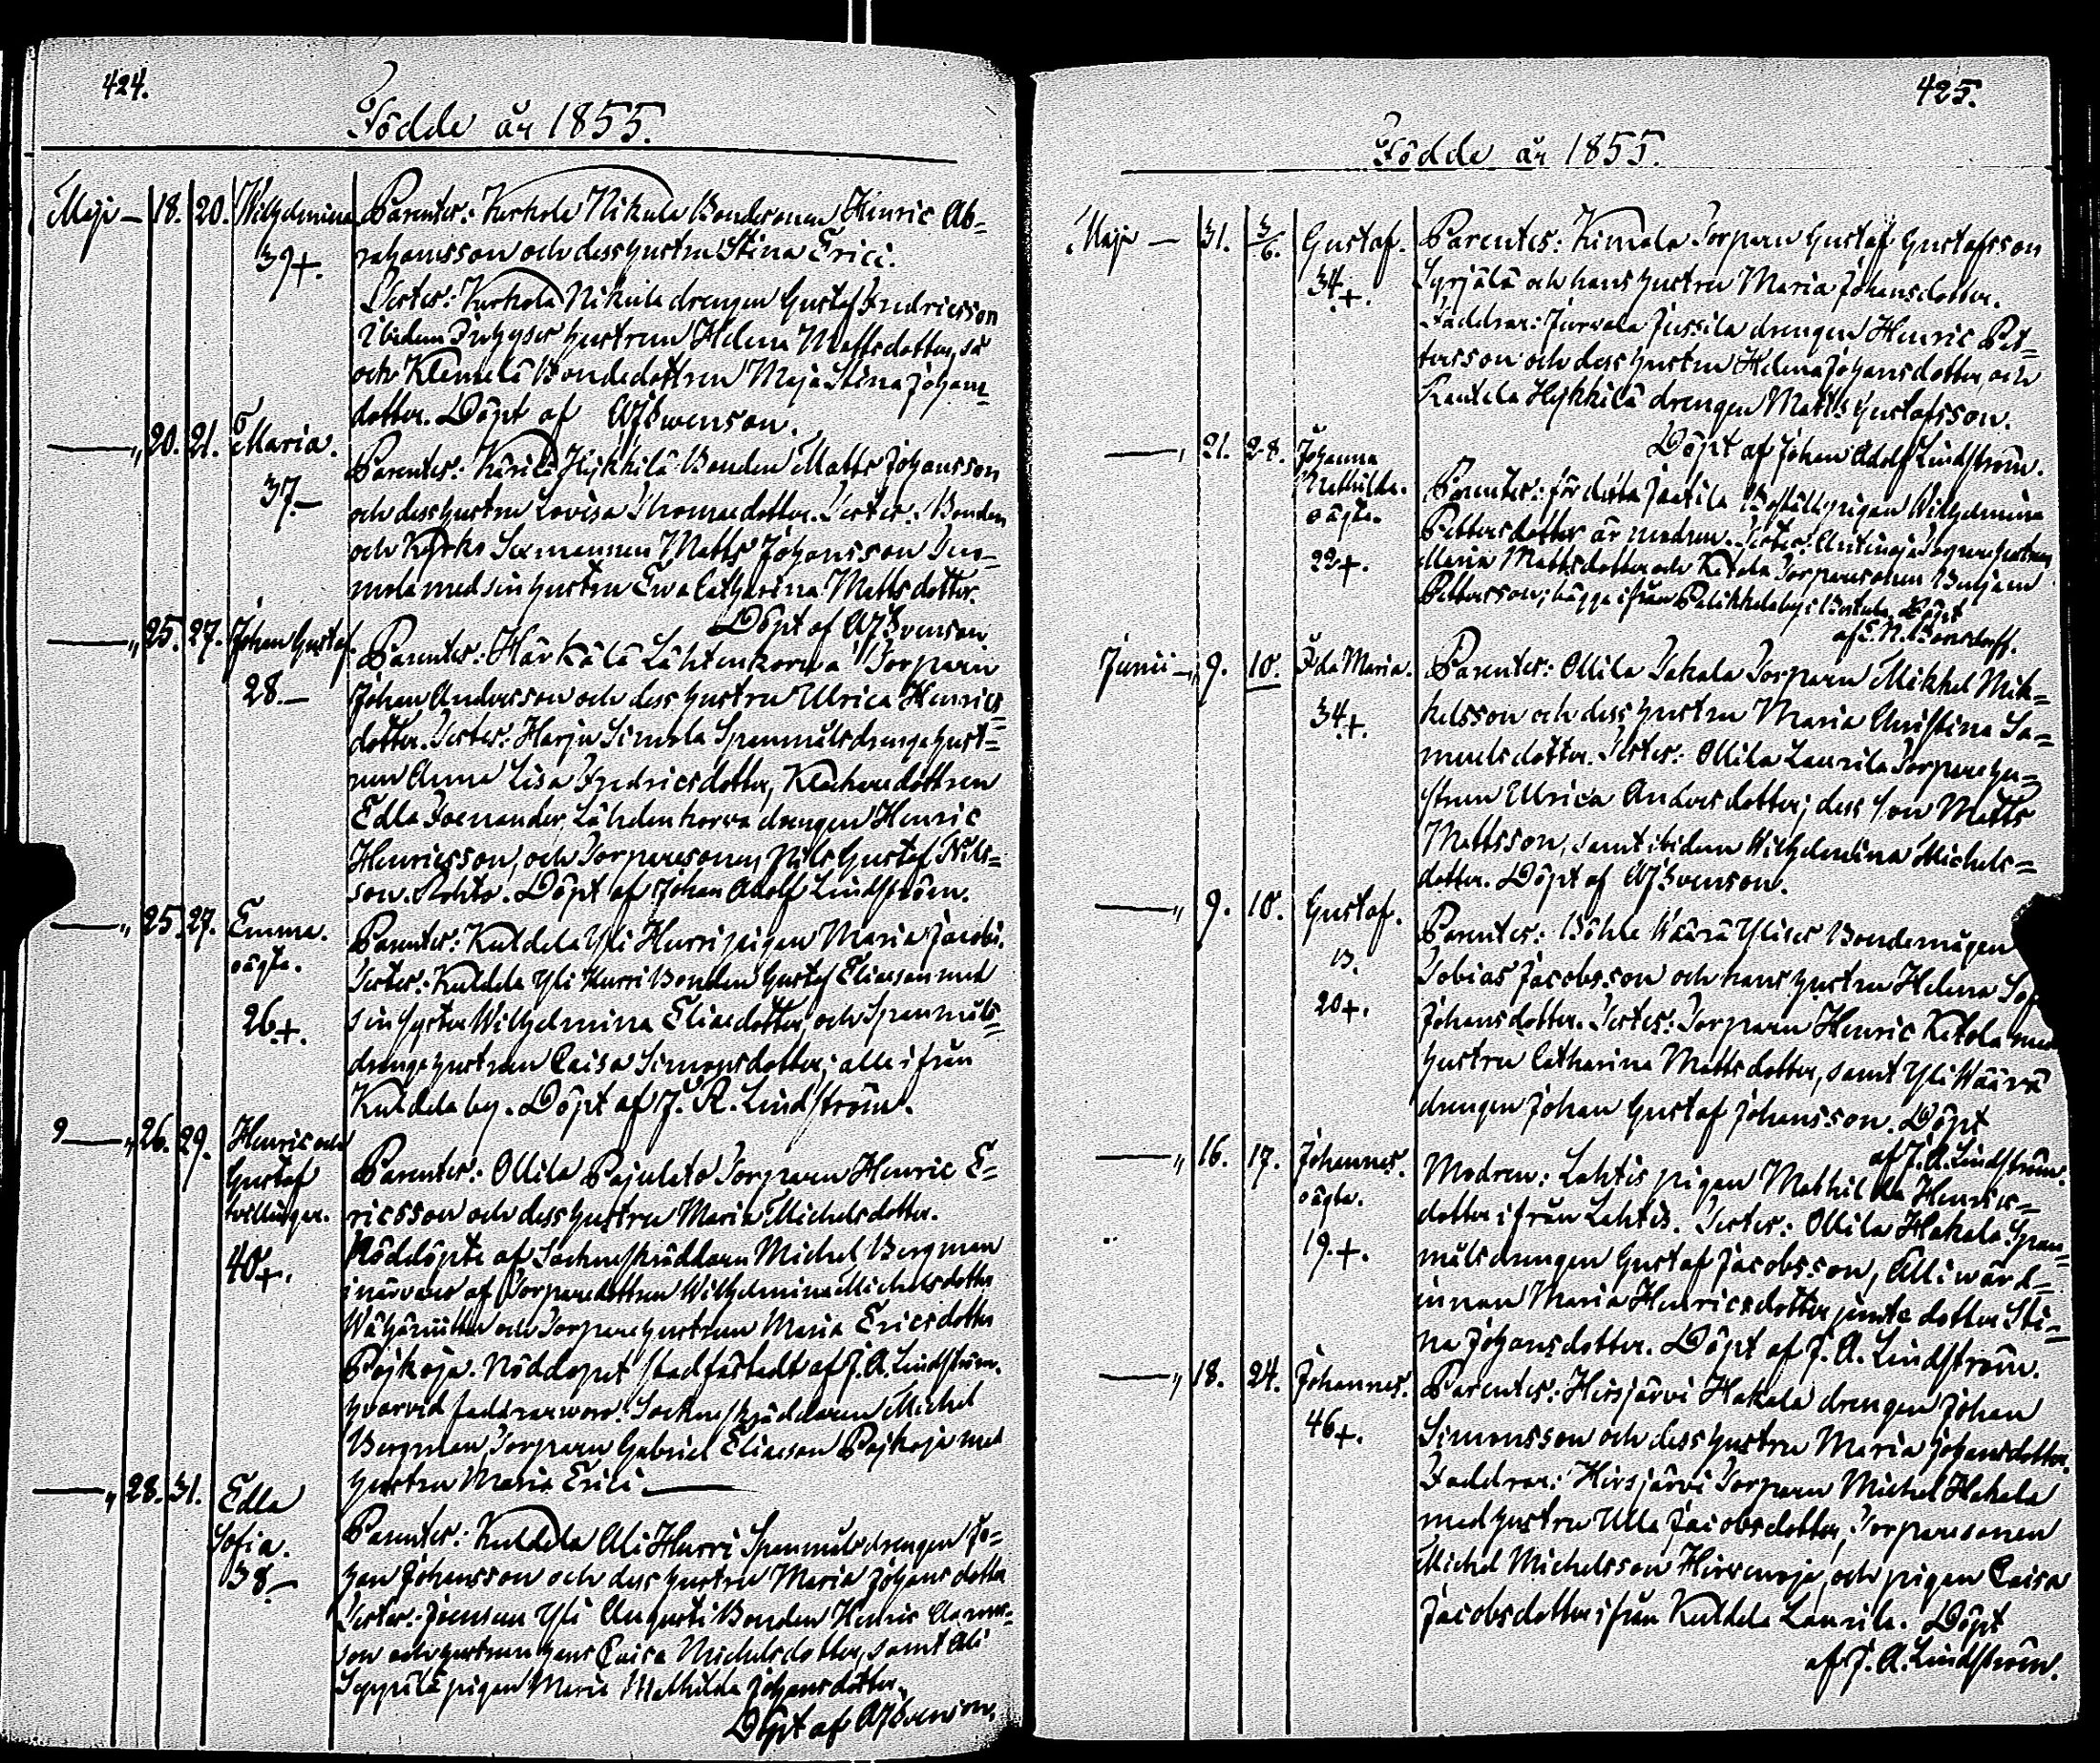 424.
Födde år 1855.
Maji — 18. 20. Wilhelmina Parentes: Karkola Nikula Bondesonen Henric Ab-
39+. rahamsson och dess hustru Stina Erici.
Testes: Karkola Nikula drengen Gustaf Fredricsson
ibidem Inhyses hustrun Helena Mattsdotter, sa
och Klemelä Bondedottren Maja Stina Johans-
dotter. Döpt af AJSvenson.
—„ 20. 21. Maria.
37.— Parentes: Kärilä Hykkilä Bonden Matts Johansson
och dess hustru Lovisa Thomædotter. Testes: Bonden
och Kyrko Sexmannen Matts Johansson Tuo-
mola med sin hustru Ewa Catharina Mattsdotter.
Döpt af AJSvenson
—„ 25. 27. Johan Gustaf.
28.— Parentes: Härkälä Lähtenkorwa Torparen
Johan Andersson och dess hustru Ulrica Henrics-
dotter. Testes: Harju Simola Spanmålsdrengehust-
run Anna Lisa Fredricsdotter, Klockaredottren
Edla Forenander, Lähdenkorva drengen Henric
Henricsson, och Torparesonen Nils Gustaf Nils-
son Rohto. Döpt af Johan Adolf Lindström.
—„ 25. 27. Emma.
oägta.
26+. Parentes: Kuldela Yli Hurri pigan Maria Jacobi.
Testes: Kuldela Yli Hurri Bonden Gustaf Eliasson med
sin syster Wilhelmina Eliasdotter, och Spanmåls-
drengehustrun Caisa Simonsdotter; alle ifrån
Kuldela by. Döpt af J. A. Lindström.
9 —„ 26. 29. Henric och
Gustaf
tvillingar.
40+. Parentes: Ollila Pajulato Torparen Henric E-
ricsson och dess hustru Maria Michelsdotter.
Nöddöpte af Sockneskräddaren Michel Bergman
i närvaro af Torparedottren Wilhelmina Michelsdotter
och Torparehustrun Maria Ericsdotter
Pojkoja. Nöddopet stadfästadt af J. A. Lindström.
hvarvid faddrar woro: Sockneskräddaren Michel
Bergman, Torparen Gabriel Eliasson Pojkoja med
hustru Maria Erici —
—„ 28. 31. Edla
Sofia.
38— Parentes: Kuldela Ali Hurri Spanmålsdrengen Jo-
han Johansson och dess hustru Maria Johansdotter
Testes: Yli Bonden Henric
son och hustrun hans Caisa Michelsdotter, samt Ali
Seppälä pigan Maria Mathilda Johansdotter.
Döpt af AJSvenson.
425.
Födde år 1855.
Maji — 31. 3/6. Gustaf.
34+. Parentes: Kimala Torparen Gustaf Gustafsson
Syrjälä och hans hustru Maria Johansdotter.
Faddrar: Jussila drengen Henric Pet-
tersson och dess hustru Helena Johansdotter, och
Rautela Hykkilä drengen Matts Gustafsson.
Döpt af Johan Adolf Lindström.
—„ 21. 28. Johanna
Mathilda.
oägta.
22+. Parentes: för detta pigan Wilhelmina
Pettersdotter är modren. Testes: Torparehustrun
Maria Mattsdotter och Ketola Torparesonen Benjam
Pettersson; bägge ifrån Döpt
af
Junii —„ 9. 10. Ida Maria.
34+. Parentes: Ollila Takala Torparen Mikkel Mik-
kelsson och dess hustru Maria Christina Sa-
muelsdotter. Testes: Ollila Laurila Torparehu-
strun Ulrica Andersdotter; dess son Matts
Mattsson, samt ibidem Wilhelmina Michels-
dotter. Döpt af AJSvenson.
—„ 9. 10. Gustaf.
B.
20+. Parentes: Wäärä Bondemågen
Tobias Jacobsson och hans hustru Helena Sof
Johansdotter. Testes: Torparen Henric Ketola med
hustru Catharina Mattsdotter, samt Yli Wäärä
drengen Johan Gustaf Johansson. Döpt
af J. A. Lindström.
—„ 16. 17. Johannes.
oägta.
19.+. Modren: Lahtis pigan Mathilda Henrics-
dotter ifrån Lahtis. Testes: Ollila Hakala Span-
målsdrengen Gustaf Jacobsson, Alli wärd-
innan Maria Henricsdotter jemte dotter Sti-
na Johansdotter. Döpt af J. A. Lindström.
—„ 18. 24. Johannes.
46+. Parentes: Hirsjärvi Hakala drengen Johan
Simonsson och dess hustru Maria Johansdotter.
Faddrar: Hirsjärvi Torparen Michel Hakala
med hustru Ulla Jacobsdotter, Torparesonen
Michel Michelsson Hirvenoja, och pigan Caisa
Jacobsdotter ifrån Kuldela Laurila. Döpt
af J. A. Lindström.